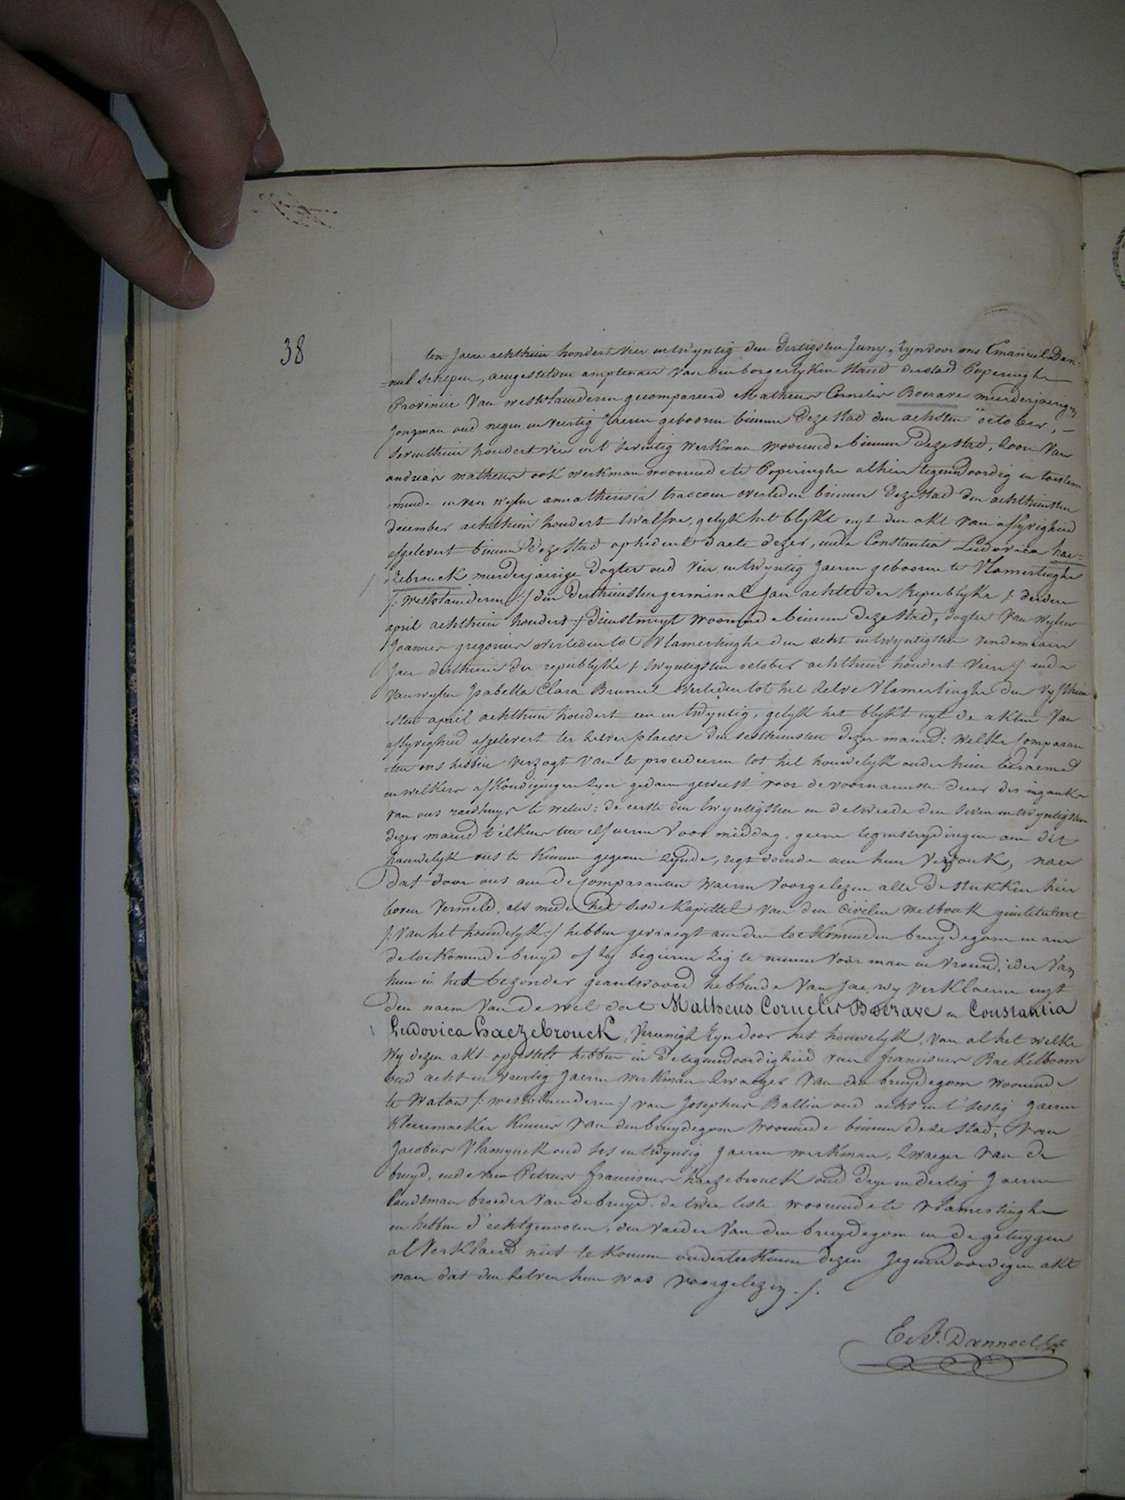 38
ten jaere achthien hondert vier en twyntig den dertigsten juny, syn voor ons Emanuel Dan-
=neel schepen, aengestelden amptenaer van den borgerlyken stand der stad Poperinghe
Provincie van westvlaenderen gecompareerd Matheus Cornelis Boerave meerderjaerigen
jongman oud negen en veertig jaeren geboren binnen deze stad den achsten october,
seventhien hondert vier en t'seventig werkman woonende binnen deze stad, zoon van
andreas matheus ook werkman woonende te Poperinghe alhier tegenwoordig en toestem-
mende en van wylen anna theresia traccoen overleden binnen deze stad den achthiensten
december achthien hondert twalf, gelyk het blykt uyt den akt van aflyvigheid
afgelevert binnen deze stad op heden daete dezer, ende Constantia Ludovica hae-
zebrouck meerderjarige dogter oud vier en twyntig jaeren geboren te Vlamertinghe
/: westvlaenderen :/ den derthiensten germinal jaer achte der Republyke / derden
april achthien hondert / dienstmeyt woonende binnen deze stad, dogter van wylen
Joannes gregorius overleden tot Vlamertinghe den acht en twyntigsten vendemiaire
jaer derthien der republyke / twyntigsten october achthien hondert vier / ende
van wylen Isabella Clara Bruneel overleden tot het zelve Vlamertinghe den vyfthien
sten april achthien hondert een en twyntig, gelyk het blykt uyt de akten van
aflyvigheid afgelevert ter zelver plaetse den sesthiensten dezer maend: welke comparan
ten ons hebben verzogt van te procederen tot het houwelyk onder hun beraemd
en welkers afkondigingen zyn gedaen geweest voor de voornaemste deur der ingank
van ons raedhuys te weten: de eerste den twyntigsten en de tweede den seven en twyntigsten
dezer maend t'elkens ten elf ueren voor middag, geene tegenstrydingen aen dit
houwelyk ons te kennen gegeven zynde, regt doende aen hun verzouk, naer
dat door ons aen de comparanten waeren voorgelezen alle de stukken hier
boven vermeld, als mede het sesde kapittel van den civielen wetbouk geintituleert
/: van het houwelyk :/ hebben gevraegt aen den toekomenden bruydegom en aen
de toekomende bruyd of zy begeeren zig te nemen voor man en vrouw, ider van
hun in het bezonder geantwoord hebbende van jae, wy verklaeren uyt
den naem van de wet dat Matheus Cornelis Boerave en Constantia
Ludovica haezebrouck, vereenigt zyn door het houwelyk, van al het welke
wy dezen akt opgestelt hebben in de tegenwoordigheid van franciscus Baekelboom
oud acht en veertig jaeren werkman zwaeger van den bruydegom woonende
te watou /: westvlaenderen :/ van Josephus Ballin oud acht en t'sestig jaeren
kleermaeker kennis van den bruydegom woonende binnen deze stad, van
Jacobus Vlamynck oud ses en twyntig jaeren werkman, zwaeger van de
bruyd, ende van Petrus franciscus haezebrouck oud dry en dertig jaeren
landsman broeder van de bruyd, de twee leste woonende te vlamertinghe
en hebben d'echtgenooten, den vaeder van den bruydegom en de getuygen
al verklaerd niet te konnen onderteekenen dezen jegenwoordigen akt
naer dat den zelven hun was voorgelezen ./.
E. J. Danneel